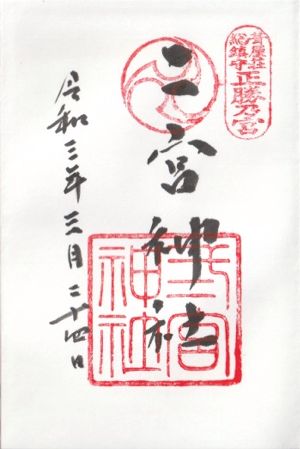 葺屋荘
総鎮守
正勝乃宮
二宮神社
二宮神社
令和三年三月二十四日